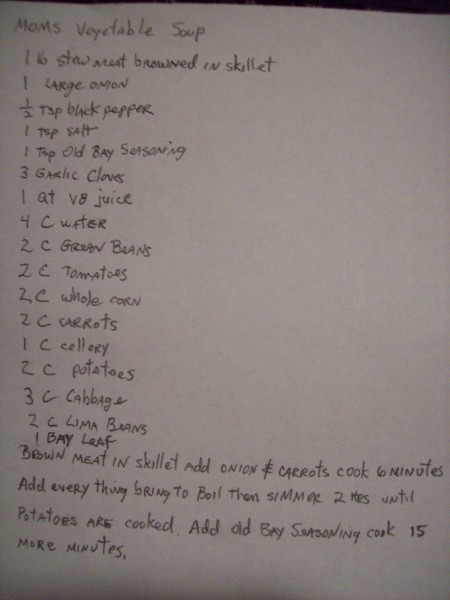 MOMS Vegetable Soup
1 lb stew meat browned in skillet
1 LARge ONION
1/2 Tsp black pepper
1 Tsp SAlt
1 Tsp Old BAY SeASONiNg
3 GARlic Cloves
1 qt V8 juice
4 C WATER
2 C GREAN BeANS
2 C TomAToes
2 C whole CORN
2 C CARROTS
1 C cellery
2 C potAToes
3 C CAbbAge
2 C LiMA BeANS
1 BAY LeAf
BROWN MEAT IN skillet Add ONION & CARROTS cook 6 MiNUTES
Add every thing bring to Boil Then SIMMER 2 HRS until
POTATOES ARE cooked. Add Old BAY SeASONiNg cook 15
MORE MiNUTES.